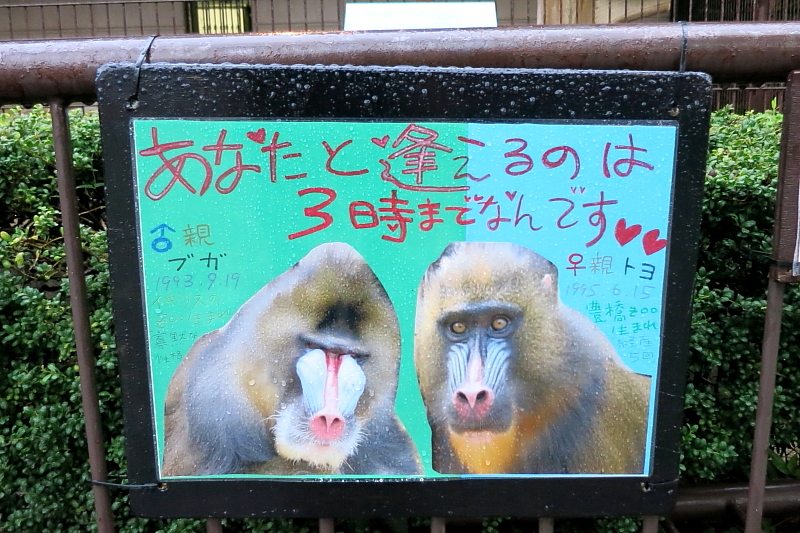 あなたと逢えるのは
3時までなんです
♂親
ブガ
1993.9.19
イギリス
♀親 トヨ
1995.6.15
豊橋zoo
生まれ
5回